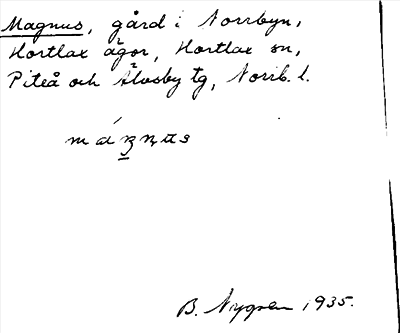 Magnus, gård i Norrbyn,
Hortlax ägor, Hortlax sn,
Piteå och Älvsby tg, Norrb. l.
B. Nygren 1935.